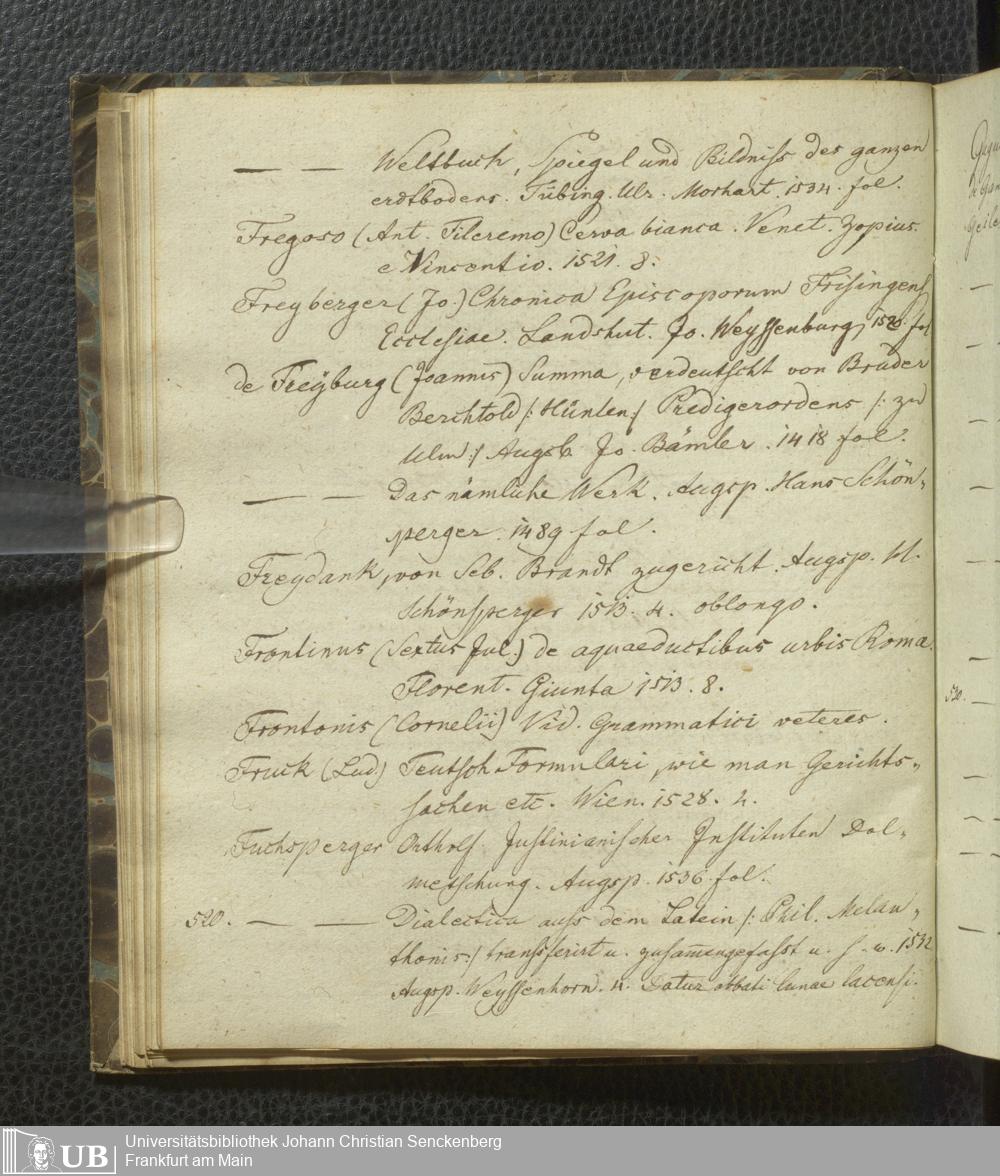 — — Weltbuch, Spiegel und Bildniss des ganzen
erdtbodens. Tübing. Ulr. Morhart. 1534. fol.
Fregoso (Ant. Fileremo) Cerva bianca. Venet. Zopius.
e Vincentio. 1521. 8.
Freyberger (Jo.) Chronica Episcoporum Frisingens
Ecclesiae. Landshut. Jo. Weyssenburg, 1520. fol
de Freÿburg (Joannis) Summa, verdeutscht von Bruder
Berchtold /: Hünlen :/ Predigerordens /: zu
Ulm :/ Augsb. Jo. Bämler. 1418 fol.
— — Das nämliche Werk. Augsp. Hans Schön„
perger. 1489 fol.
Freydank, von Seb. Brandt zugericht. Augsp. H.
Schönsperger 1513. 4. oblongo.
Frontinus (Sextus Jul.) de aquaeductibus urbis Roma.
Florent. Giunta 1513. 8.
Frontonis (Cornelii) Vid. Grammatici veteres.
Fruck (Lud.) Teutsch Formulari, wie man Gerichts„
sachen etc. Wien. 1528. 4.
Fuchsperger Ortholf. Justinianischer Instituten Dol„
metschung. Augsp. 1536. fol.
520. — — Dialectica auss dem Latein /: Phil. Melan„
thonis :/ transferirt u. zusam̄engefasst u. s. w. 1532
Augsp. Weyssenhorn. 4. Datur abbati lunae lacensi.
520.
UB
Universitätsbibliothek Johann Christian Senckenberg
Frankfurt am Main